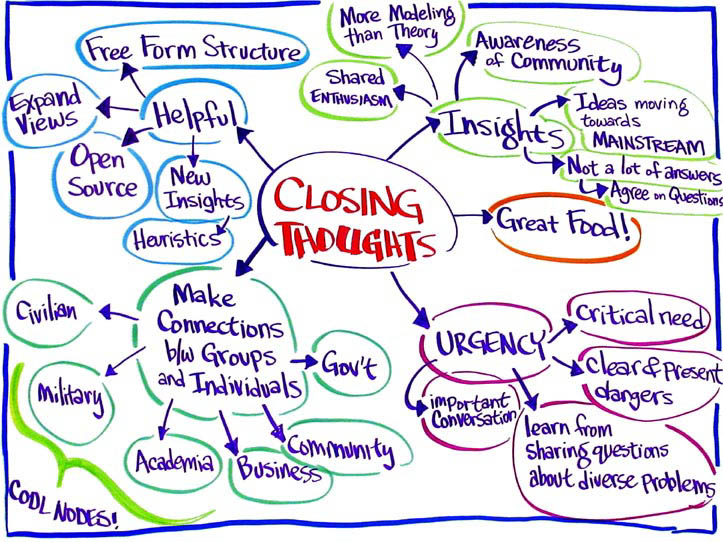 CLOSING
THOUGHTS
Helpful
Free Form Structure
Expand
Views
Open
Source
New
Insights
Heuristics
Insights
More Modeling
than Theory
Shared
ENTHUSIASM
Awareness
of Community
Ideas moving
towards
MAINSTREAM
Not a lot of answers
Agree on Questions
Great Food!
URGENCY
Critical need
Clear & Present
dangers
learn from
Sharing questions
about diverse problems
important
Conversation
Make
Connections
b/w Groups
and Individuals
Civilian
Military
Academia
Business
Community
Gov't
COOL NODES!